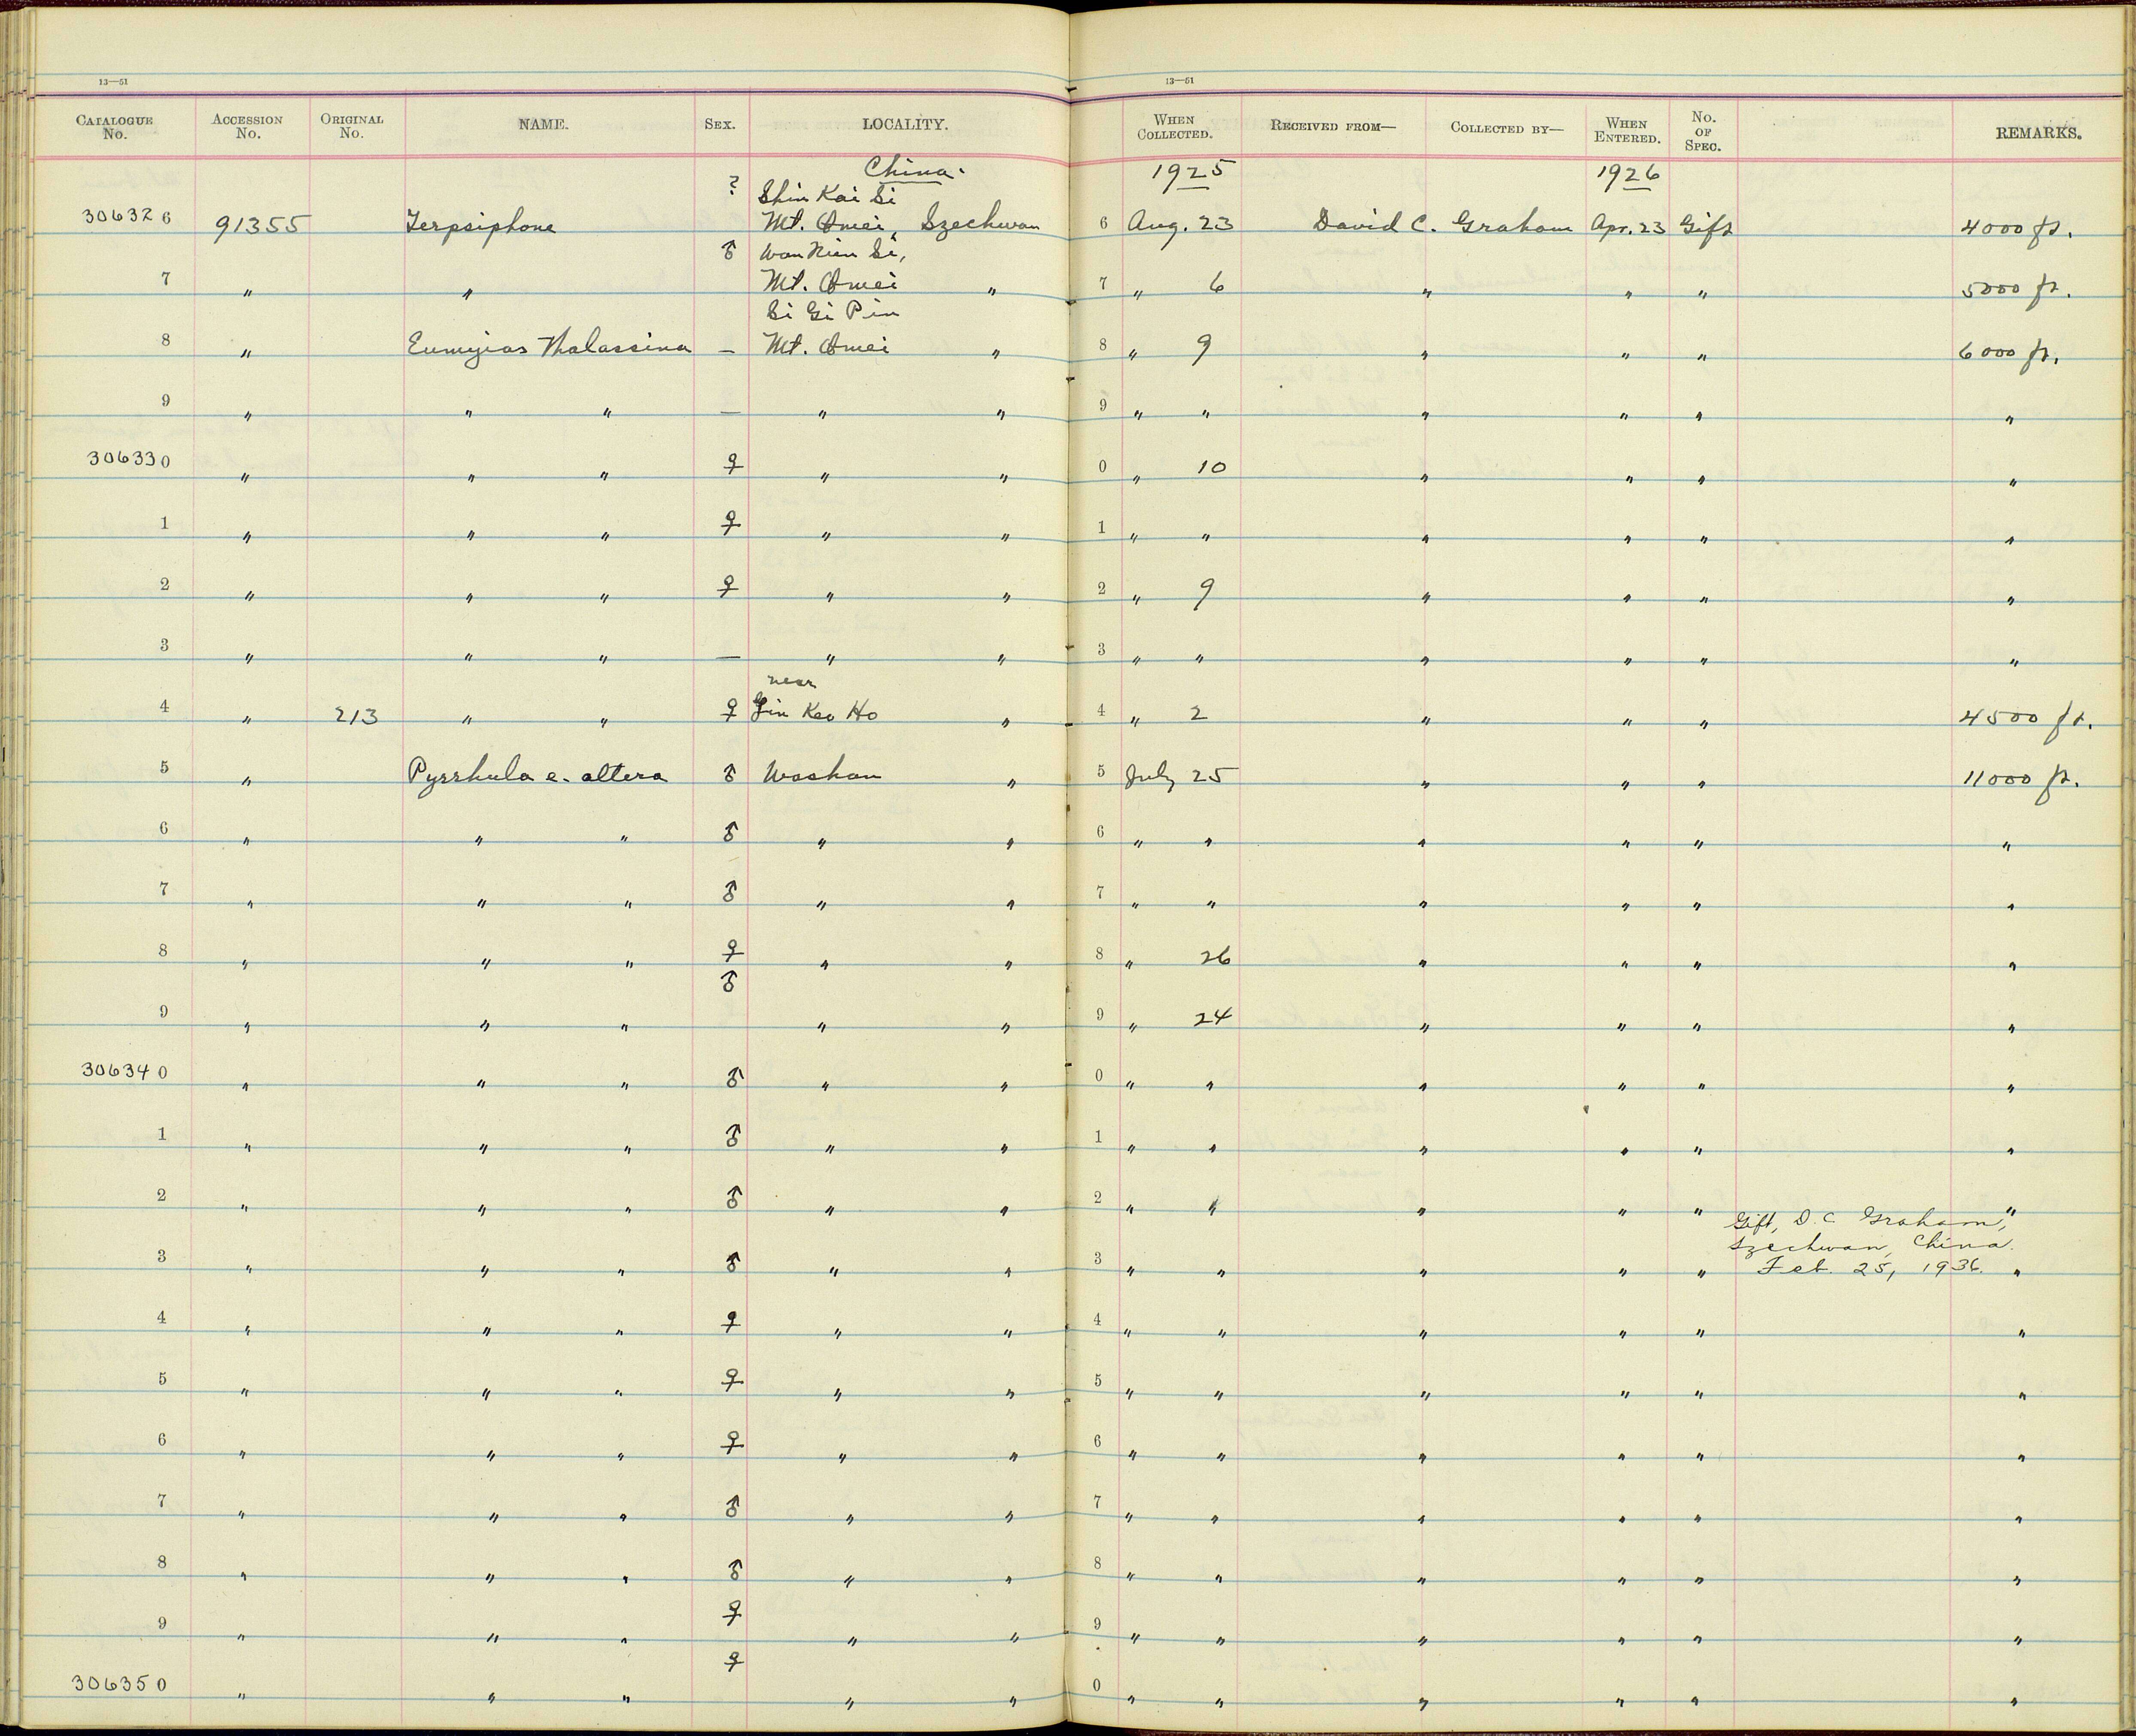 13—51 13—51
CATALOGUE No. ACCESSION No. ORIGINAL No. NAME. SEX. LOCALITY. WHEN COLLECTED. RECEIVED FROM— COLLECTED BY— WHEN ENTERED. No. OF SPEC. REMARKS.
China. 1925 1926
? Shin Kai Si
306326 91355 Terpsiphone Mt. Omei, Szechwan 6 Aug. 23 David C. Graham Apr. 23 Gift 4000 ft.
♂ Wan Nien Si,
7 " " Mt. Omei " 7 " 6 " " " 5000 ft.
Si Gi Pin
8 " Eumyias Thalassina – Mt. Omei " 8 " 9 " " " 6000 ft.
9 " " " – " " 9 " " " " " "
306330 " " " ♀ " " 0 " 10 " " " "
1 " " " ♀ " " 1 " " " " " "
2 " " " ♀ " " 2 " 9 " " " "
3 " " " – " " 3 " " " " " "
near
4 " 213 " " ♀ Gin Keo Ho " 4 " 2 " " " 4500 ft.
5 " Pyrrhula e. altera ♂ Washan " 5 July 25 " " " 11000 ft.
6 " " " ♂ " " 6 " " " " " "
7 " " " ♂ " " 7 " " " " " "
8 " " " ♀ " " 8 " 26 " " " "
9 " " " ♂ " " 9 " 24 " " " "
306340 " " " ♂ " " 0 " " " " " "
1 " " " ♂ " " 1 " " " " " "
2 " " " ♂ " " 2 " " " " " "
Gift, D. C Graham,
Szechwan, China.
3 " " " ♂ " " 3 " " " " " Feb. 25, 1936. "
4 " " " ♀ " " 4 " " " " " "
5 " " " ♀ " " 5 " " " " " "
6 " " " ♀ " " 6 " " " " " "
7 " " " ♂ " " 7 " " " " " "
8 " " " ♂ " " 8 " " " " " "
9 " " " ♀ " " 9 " " " " " "
306350 " " " ♀ " " 0 " " " " " "